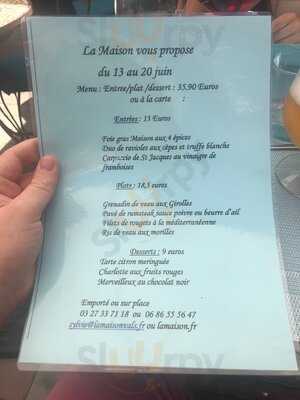 La Maison vous propose
du 13 au 20 juin
Menu : Entree/plat /dessert : 35.90 Euros
ou à la carte :
Entrées : 13 Euros
Foie gras Maison aux 4 épices
Duo de ravioles aux cèpes et truffe blanche
Carpaccio de St Jacques au vinaigre de
framboises
Plats : 18,5 euros
Grenadin de veau aux Girolles
Pavé de rumsteak sauce poivre ou beurre d'ail
Filets de rougets à la méditerranéenne
Ris de veau aux morilles
Desserts : 9 euros
Tarte citron meringuée
Charlotte aux fruits rouges
Merveilleux au chocolat noir
Emporté ou sur place
03 27 33 73 18 ou 06 86 55 56 47
sylvie@lamaisonvals.fr ou lamaison.fr
sluurpy
sluurpy